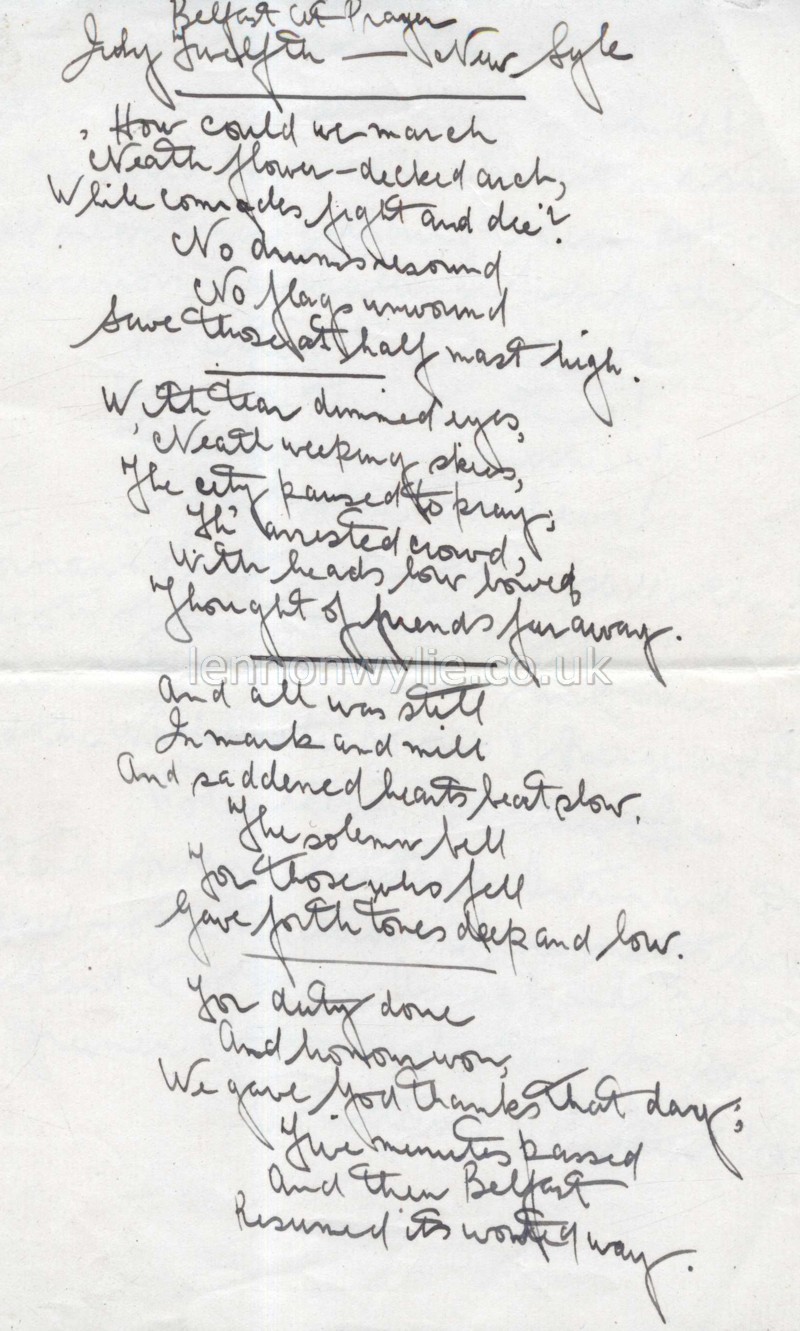 Belfast At Prayer
July Twelfth — New Syle
How could we march
'Neath flower-decked arch,
While comrades fight and die?
No drums resound
No flags unwound
Save those at half mast high.
With tear dimmed eyes,
'Neath weeping skies,
The city paused to pray;
Th' arrested crowd,
With heads low bowed
Thought of friends far away.
lennonwylie.co.uk
And all was still
In mart and mill
And saddened hearts beat slow.
The solemn bell
For those who fell
Gave forth tones deep and low.
For duty done
And honour won,
We gave God thanks that day;
Five minutes passed
And then Belfast
Resumed its wonted way.